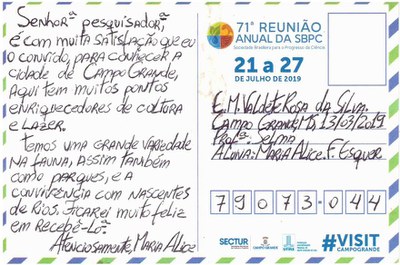 Senhorª pesquisadorª
É com muita satisfação que eu
o convido, para conhecer a
cidade de Campo Grande,
aqui tem muitos pontos
enriquecedores de cultura
e lazer.
Temos uma grande variedade
na fauna, assim também
como parques, e a
convivência com nascentes
de rios. Ficarei muito feliz
em recebê-lo.
Atenciosamente, Maria Alice
71ª REUNIÃO
ANUAL DA SBPC
Sociedade Brasileira para o Progresso da Ciência
21 a 27
DE JULHO DE 2019
E.M. Valdete Rosa da Silva.
Campo Grande MS, 13/03/2019
Profª. Selma
Aluna: Maria Alice. F. Esquer
79073-044
SECTUR
CAMPO GRANDE
#VISIT
CAMPOGRANDE